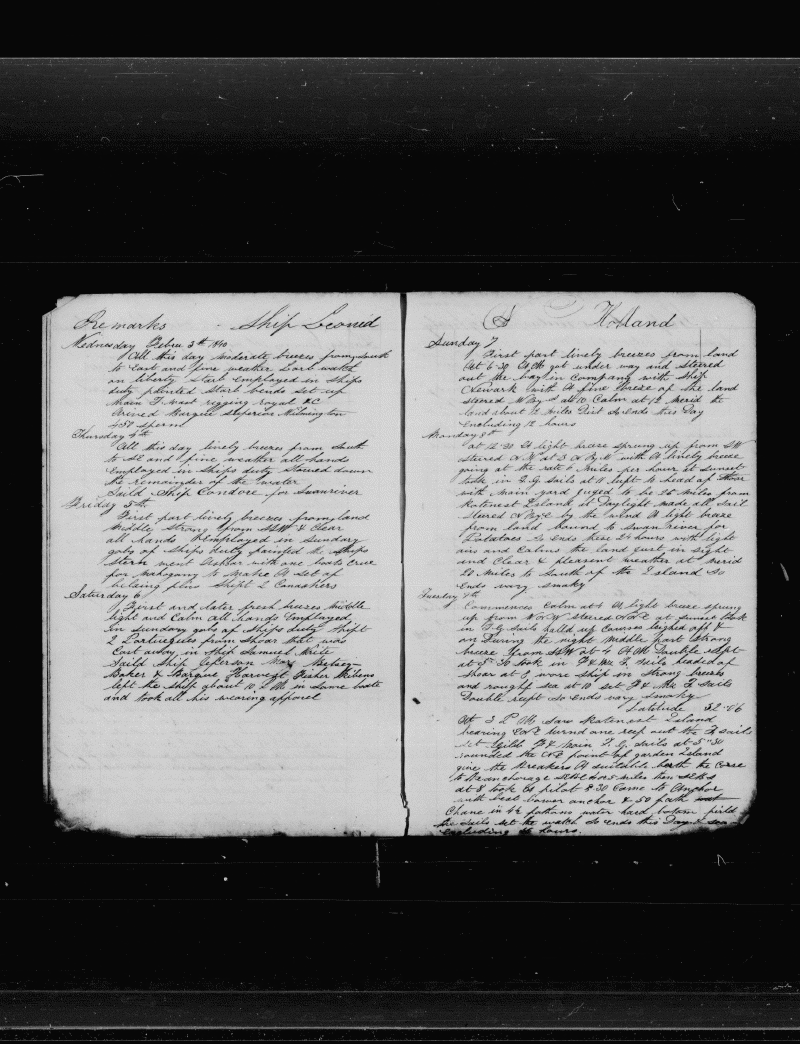 Remarks - Ship Leonid
Wednesday Febru 3th 1840
All this day moderate breezes from South
to East and fine weather Larb watch
on liberty Starb Employed in Ships
duty painted Starb bends set up
Main T mast rigging royal &C
arived Barque Superior Wilmington
450 sperm
Thursday 4th
All this day lively breezes from South
to SE and fine weather all hands
Employed in Ships duty Stowed down
the remainder of the water
Saild Ship Condore for Swanriver
Friday 5th
First part lively breezes from land
Middle strong from SSW & Clear
all hands Employed in Sundary
gobs of Ships duty painted the Ships
Stern went Ashoar with one boats Crue
for Mahogany to Make A set of
belaing pins Shipt 2 Canackers
Saturday 6
First and later fresh breezes Middle
light and Calm all hands Employed
in Sundary gobs of Ships duty Shipt
2 Portugees from Shoar that was
Cast away in Ship Samuel Write
Saild Ship Jeferson Mary Betsey
Baker & Barque Harvest Fisher
left the ship about 10 P M in Some boate
and took all his wearing apparel
S Holland
Sunday 7
First part lively breezes from land
At 6-30 A M got under way and Steered
out the bay in Company with Ship
Newark with A fine breeze of the land
Steered at 10 Calm at 12 Merid the
land about 12 Miles Dist So Ends this Day
Encluding 12 hours
Monday 8th
at 12-30 A light breeze sprung up from SW
Steered N W at 3 with A lively breeze
going at the rate 6 Miles per hour at Sunset
took in T.G. Sails at 11 Luft to head of Shoar
with Main yard to be 25 Miles from
Ratenest Island at Daylight Made all Sail
Steered by the wind A light breeze
from land bound to Swan river for
Potatoes So Ends these 24 hours with light
airs and Calms the land Just in Sight
and Clear & pleasant weather at Merid
20 Miles to South of the Island So
Ends vary Smoky
Tuesday 9th
Commences Calm at 1 A light breeze Sprung
up from Steered at Sunset took
in T.G. Sails halld up Courses off &
on During the night Middle part Strong
breeze from SSW at 4 A M Double reeft
at 5-30 took in F & Mz T. Sails headed of
Shoar at 8 wore Ship in Strong breezes
and rough Sea at 10 Set F & Mz T Sails
Double reeft So Ends vary Smoky
Latitude 32-06
At 3 P M Saw Rateneast Island
bearing turnd one reef out the T Sails
Set Main T.G. Sails at 5-30
rounded the point of garden Island
give the Breakers A suitable berth the Corse
to the anchorage
at 8 took A pilot 8 30 Came to Anchor
with best bower anchor & 50 fath
Chane in fathoms water hard botom
the Sails set the watch So Ends this Day
Encluding hours.